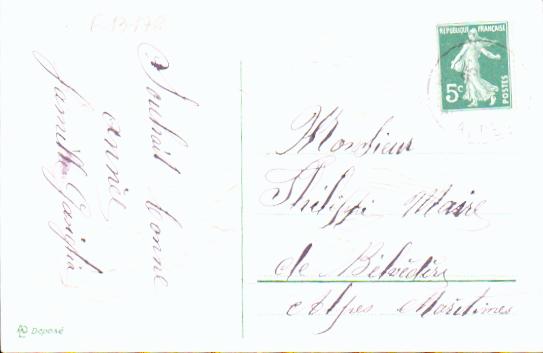 Souhait bonne
année
famille Gasiglia
RÉPUBLIQUE FRANÇAISE
5c
POSTES
Monsieur
Philippe Maire
de Bélvédère
Alpes Maritimes
Déposé